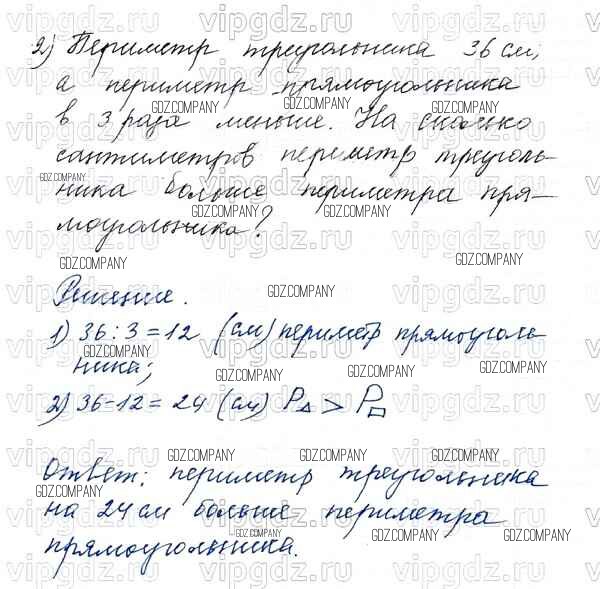 2) Периметр треугольника 36 см,
а периметр прямоугольника
в 3 раза меньше. На сколько
сантиметров периметр треуголь-
ника больше периметра пря-
моугольника?
Решение.
1) 36 : 3 = 12 (см) периметр прямоуголь-
ника;
2) 36 - 12 = 24 (см) P△ > P□
Ответ: периметр треугольника
на 24 см больше периметра
прямоугольника.
vipgdz.ru
GDZ.COMPANY